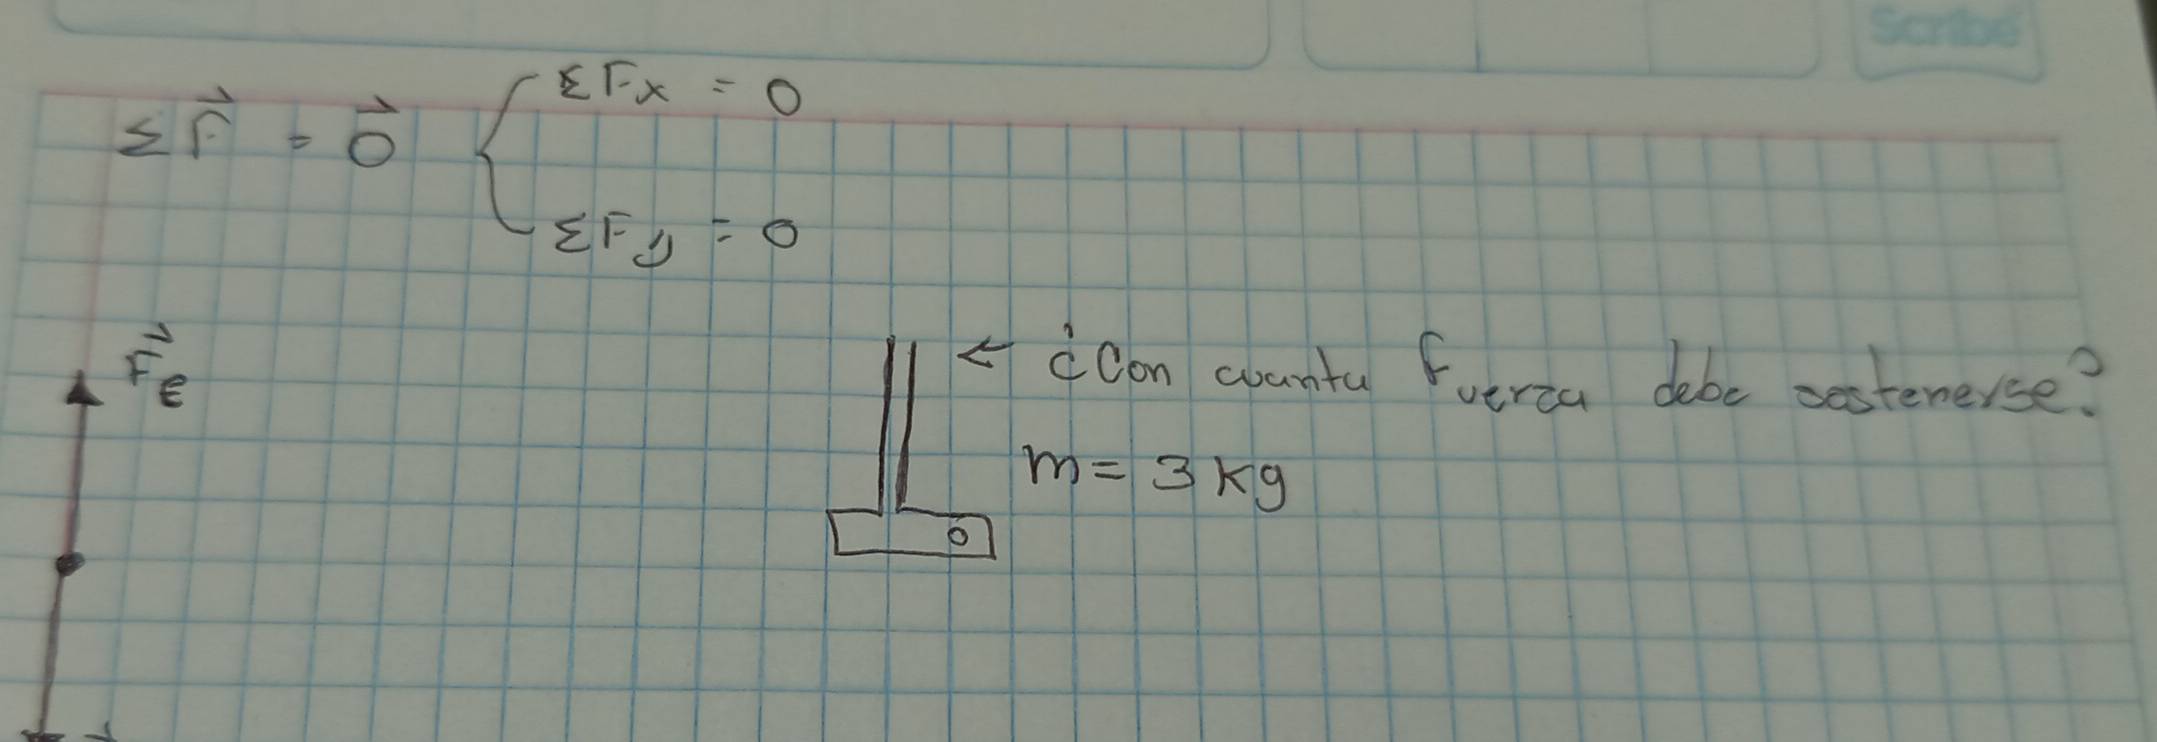 Scribe
ΣF⃗ = 0⃗ { ΣFx = 0
ΣFy = 0
F⃗E
← ¿Con cuanta fuerza debe sostenerse?
m = 3 kg